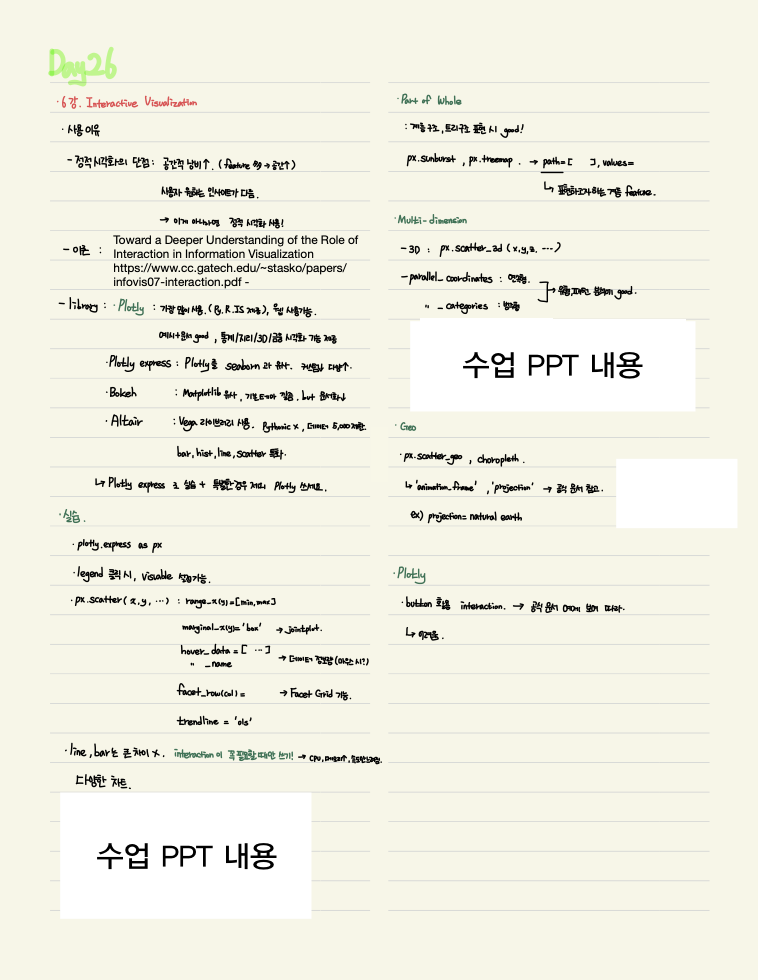 Day26
· 6강. Interactive Visualization
· 사용 이유
- 정적시각화의 단점 : 공간적 낭비↑. ( feature 多 → 공간↑)
사용자 원하는 인사이트가 다름.
→ 이게 아니라면 정적 시각화 사용!
- 이론 : Toward a Deeper Understanding of the Role of
Interaction in Information Visualization
https://www.cc.gatech.edu/~stasko/papers/
infovis07-interaction.pdf -
- library : · Plotly : 가장 많이 사용. (Py, R, JS 제공), 웹 사용가능.
예시+문서 good , 통계/지리/3D/금융 시각화 기능 제공
· Plotly express : Plotly를 seaborn과 유사. 커스텀 다양↑.
· Bokeh : Matplotlib 유사, 기본테마 깔끔. but 문서화↓
· Altair : Vega 라이브러리 사용. Pythonic x, 데이터 5,000제한.
bar, hist, line, scatter 특화.
↳ Plotly express 로 실습 + 특별한 경우 제외 Plotly 쓰세요.
· 실습.
· plotly.express as px
· legend 클릭 시, visiable 설정가능.
· px.scatter( x, y, ···) : range_x(y)=[min,max]
marginal_x(y)= 'box' → jointplot.
hover_data = [ ··· ]
〃 _name → 데이터 정보량 (마우스 시?)
facet_row(col) = → Facet Grid 가능.
trendline = 'ols'
· line, bar는 큰 차이 x. interaction이 꼭 필요할 때만 쓰기! → CPU, 메모리↑,
다양한 차트.
수업 PPT 내용
· Part of Whole
: 계층구조, 트리구조 표현 시 good!
px.sunburst , px.treemap . → path=[ ], values=
↳ 표현하고자하는 계층 feature.
· Multi-dimension
- 3D : px.scatter_3d ( x,y,z, ···)
- parallel_coordinates : 연속형.
〃 _categories : 범주형
→ 유형,패턴 분석에 good.
수업 PPT 내용
· Geo
· px.scatter_geo , choropleth .
↳ 'animation_frame' , 'projection' → 공식 문서 참고.
ex) projection= natural earth
· Plotly
· button 활용 interaction. → 공식 문서 예제 보며 따라.
↳ 어려움.